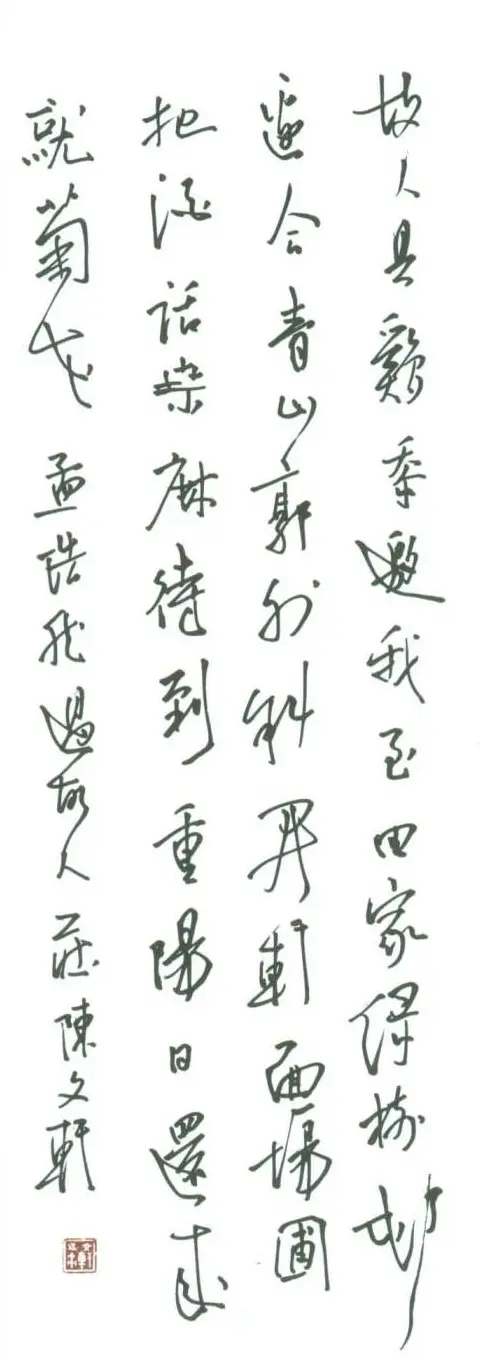 故人具雞黍邀我至田家綠樹邨
邊合青山郭外斜開軒面場圃
把酒話桑麻待到重陽日還來
就菊花 孟浩然過故人莊陳文軒